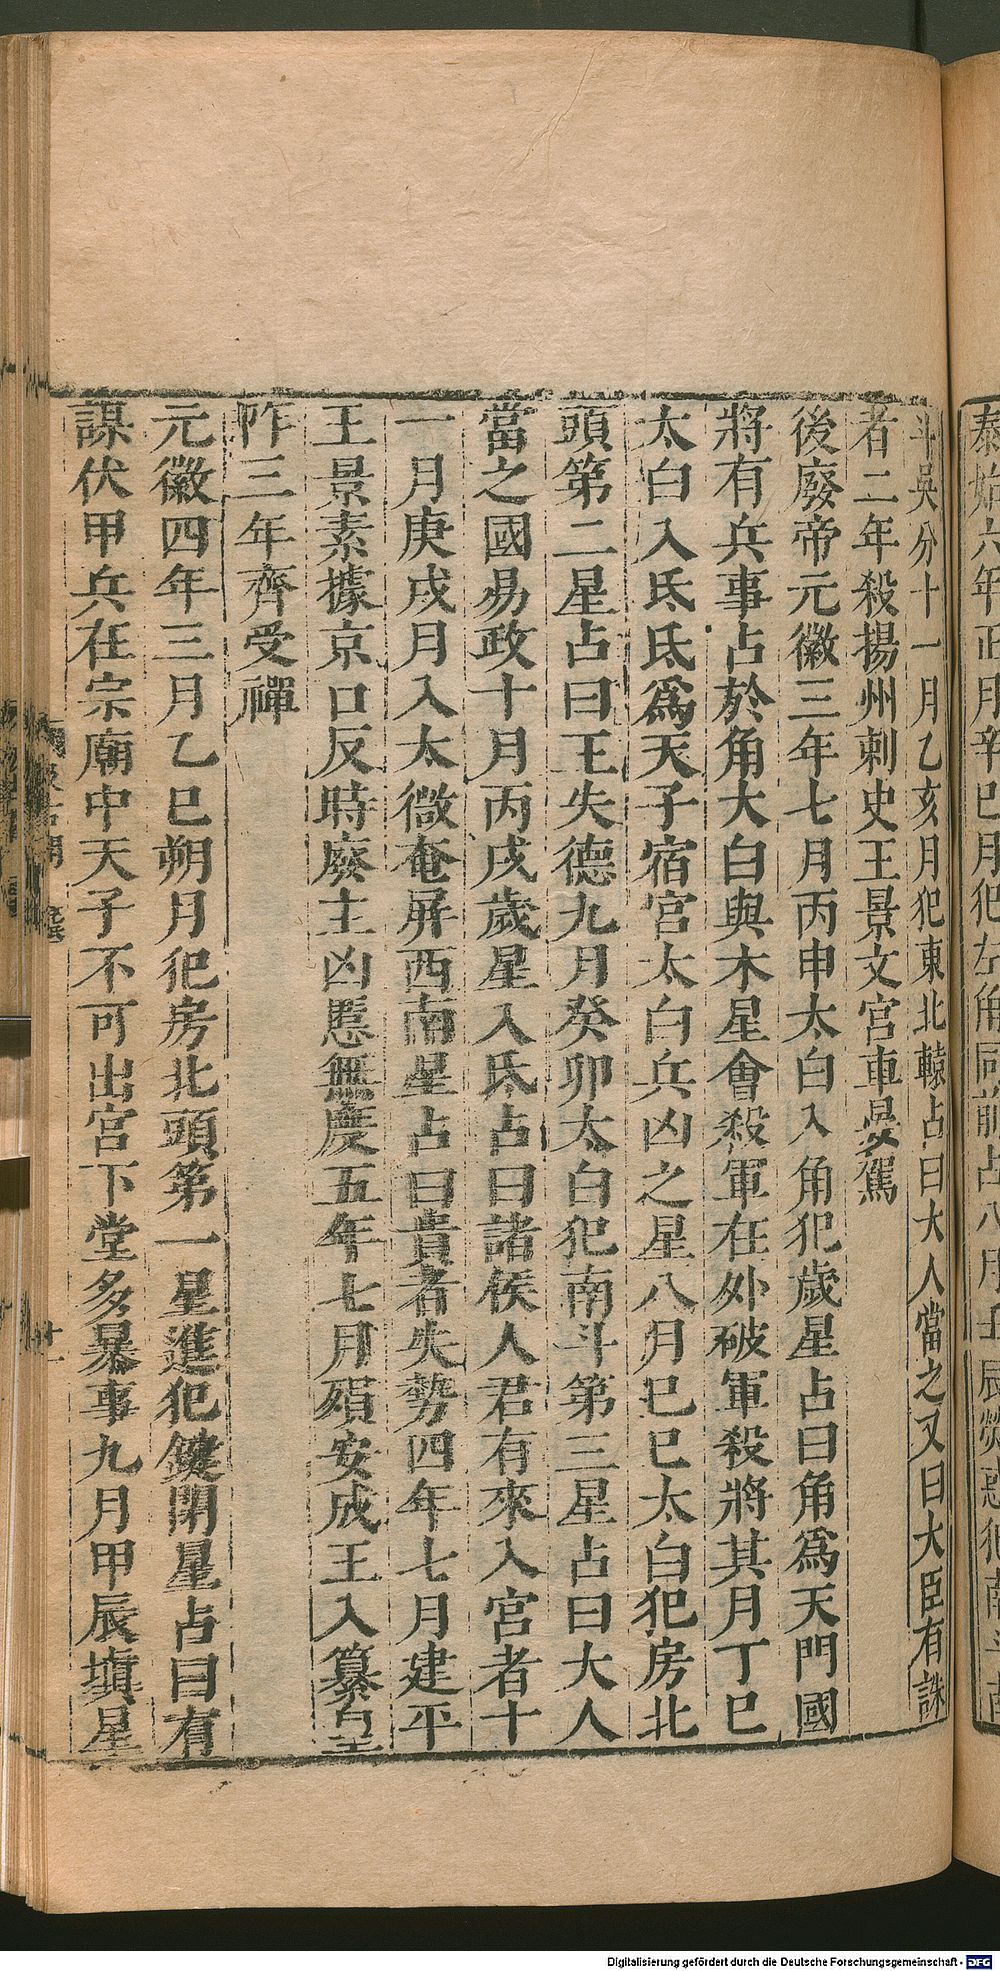 泰始六年正月辛巳月犯左角同前占八月壬辰熒惑犯南斗南
斗吳分十一月乙亥月犯東北轅占曰大人當之又曰大臣有誅
者二年殺揚州刺史王景文宮車晏駕
後廢帝元徽三年七月丙申太白入角犯歲星占曰角爲天門國
將有兵事占於角太白與木星會殺軍在外破軍殺將其月丁巳
太白入氐氐爲天子宿宮太白兵凶之星八月巳巳太白犯房北
頭第二星占曰王失德九月癸卯太白犯南斗第三星占曰大人
當之國易政十月丙戌歲星入氐占曰諸侯人君有來入宮者十
一月庚戌月入太微奄屏西南星占曰貴者失勢四年七月建平
王景素據京口反時廢主凶慝無度五年七月殞安成王入纂皇
怍三年齊受禪
元徽四年三月乙巳朔月犯房北頭第一星進犯鍵閉星占曰有
謀伏甲兵在宗廟中天子不可出宮下堂多暴事九月甲辰塡星
汲古閣
十一
Digitalisierung gefördert durch die Deutsche Forschungsgemeinschaft - DFG